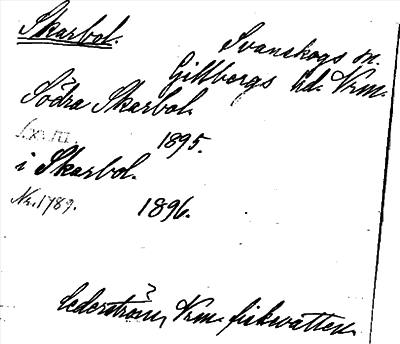 Skarbol.
Svanskogs sn.
Gillbergs hd. Vrm.
Södra Skarbol.
1895.
i Skarbol.
Nr. 1789.
1896.
Cederström, Vrm. fiskvatten